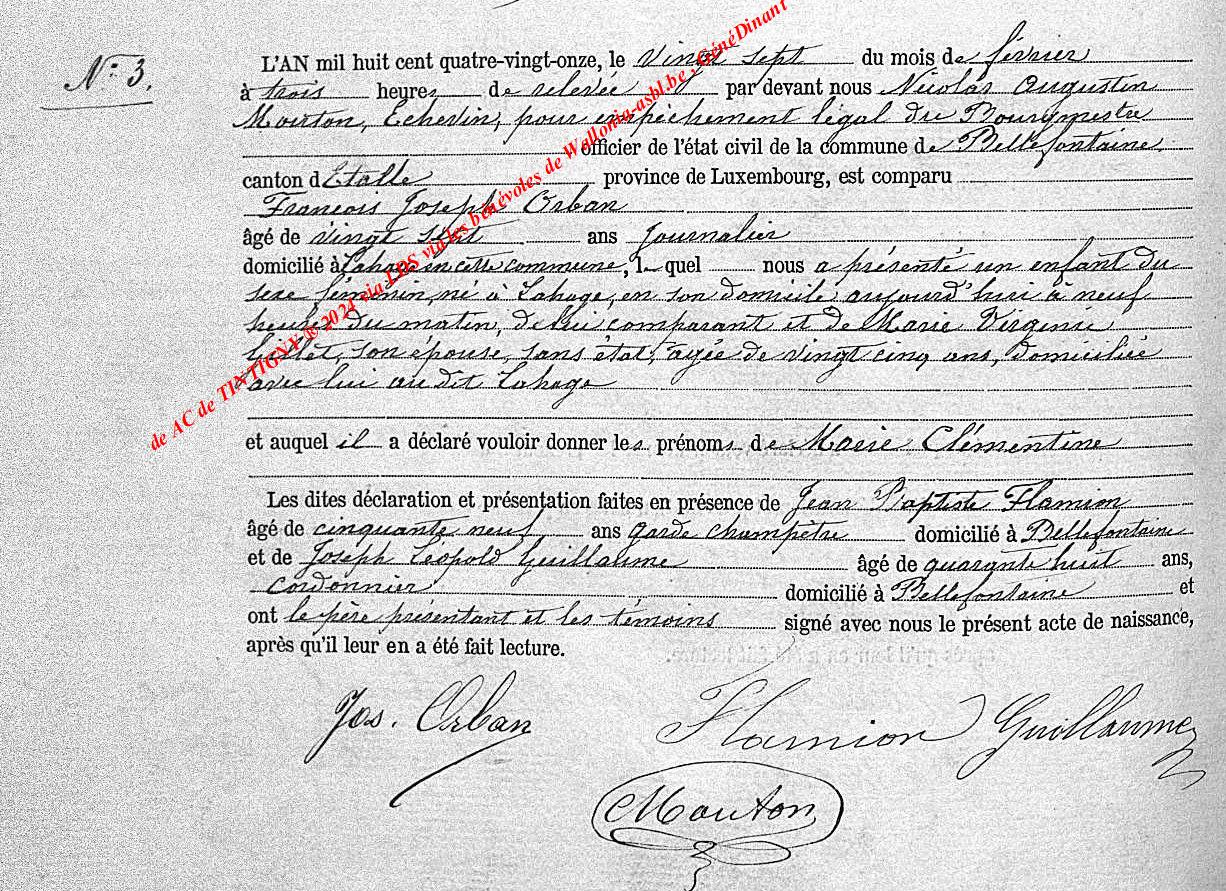 N° 3.
L'AN mil huit cent quatre-vingt-onze, le vingt sept du mois de février
à trois heures de relevée par devant nous Nicolas Augustin
Mouton, Echevin, pour empêchement légal du Bourgmestre
officier de l'état civil de la commune de Bellefontaine,
canton d'Etalle province de Luxembourg, est comparu
François Joseph Orban
âgé de vingt sept ans journalier
domicilié à Lahage en cette commune, le quel nous a présenté un enfant du
sexe féminin, né à Lahage, en son domicile aujourd'hui à neuf
heures du matin, de lui comparant et de Marie Virginie
son épouse, sans état, agée de vingt cinq ans, domiciliée
avec lui au dit Lahage
et auquel il a déclaré vouloir donner les prénoms de Marie Clémentine
Les dites déclaration et présentation faites en présence de Jean Baptiste Flamion
âgé de cinquante neuf ans garde champêtre domicilié à Bellefontaine
et de Joseph Léopold Guillaume âgé de quarante huit ans,
cordonnier domicilié à Bellefontaine et
ont le père présentant et les témoins signé avec nous le présent acte de naissance,
après qu'il leur en a été fait lecture.
Jos. Orban Flamion Guillaume
Mouton
de AC de TINTIGNY ® 2024 via LDS via les bénévoles de Wallonia-asbl.be , GénéDinant